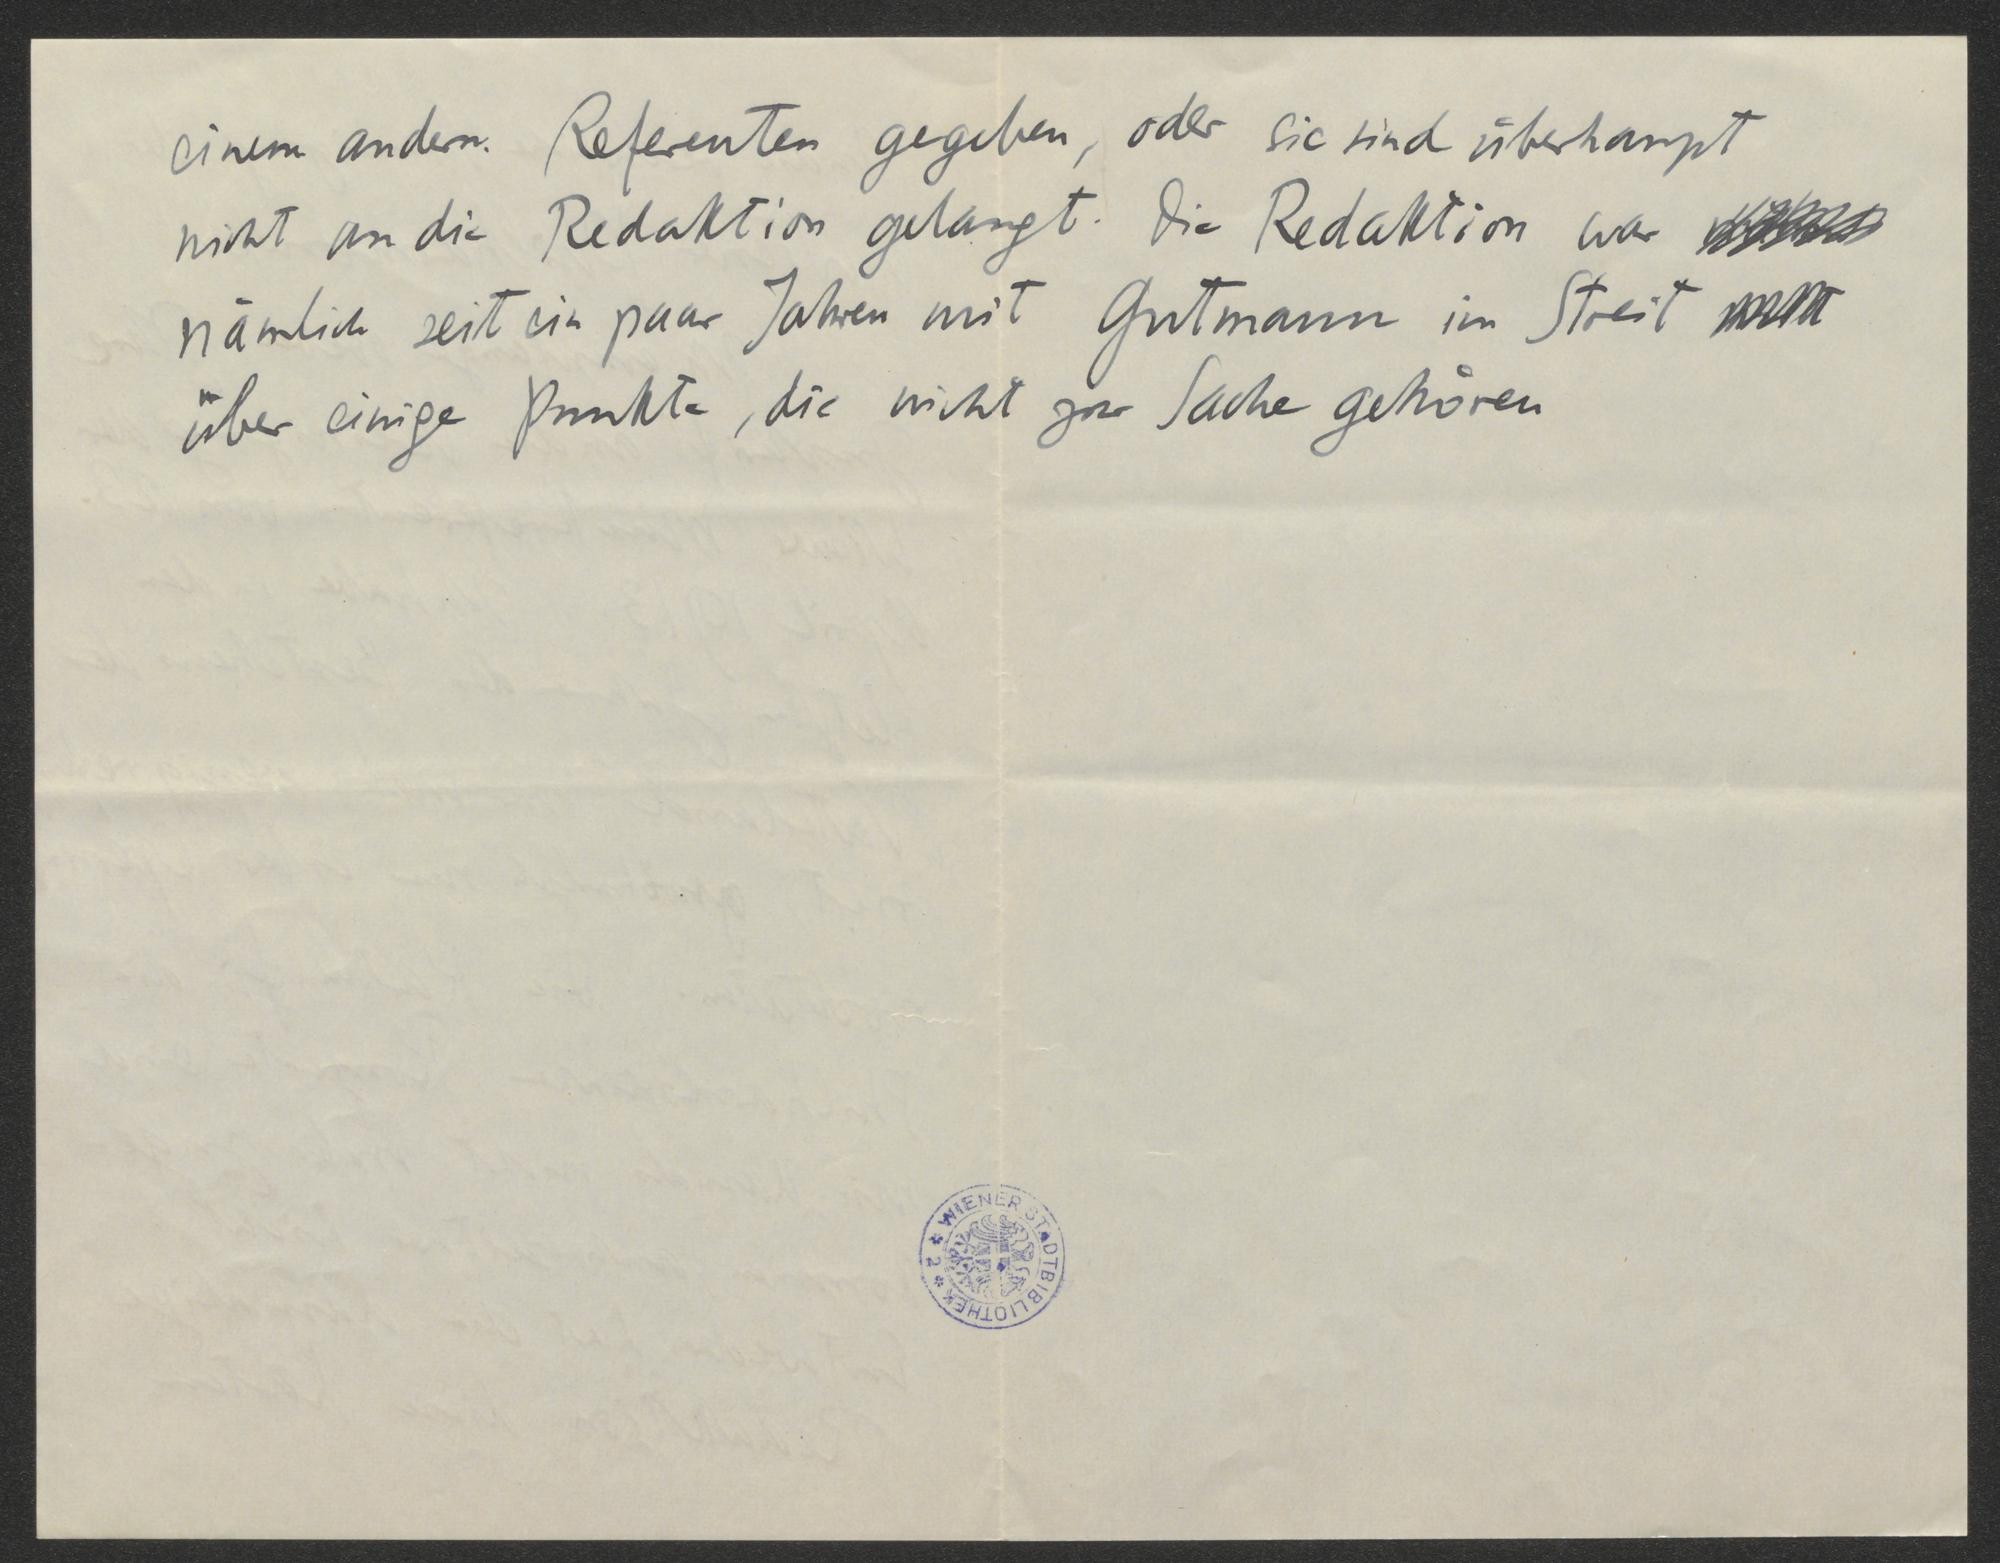 einem andern Referenten gegeben, oder sie sind überhaupt
nicht an die Redaktion gelangt. Die Redaktion war
nämlich seit ein paar Jahren mit Gutmann im Streit
über einige Punkte, die nicht zur Sache gehören
* WIENER STADTBIBLIOTHEK * 2